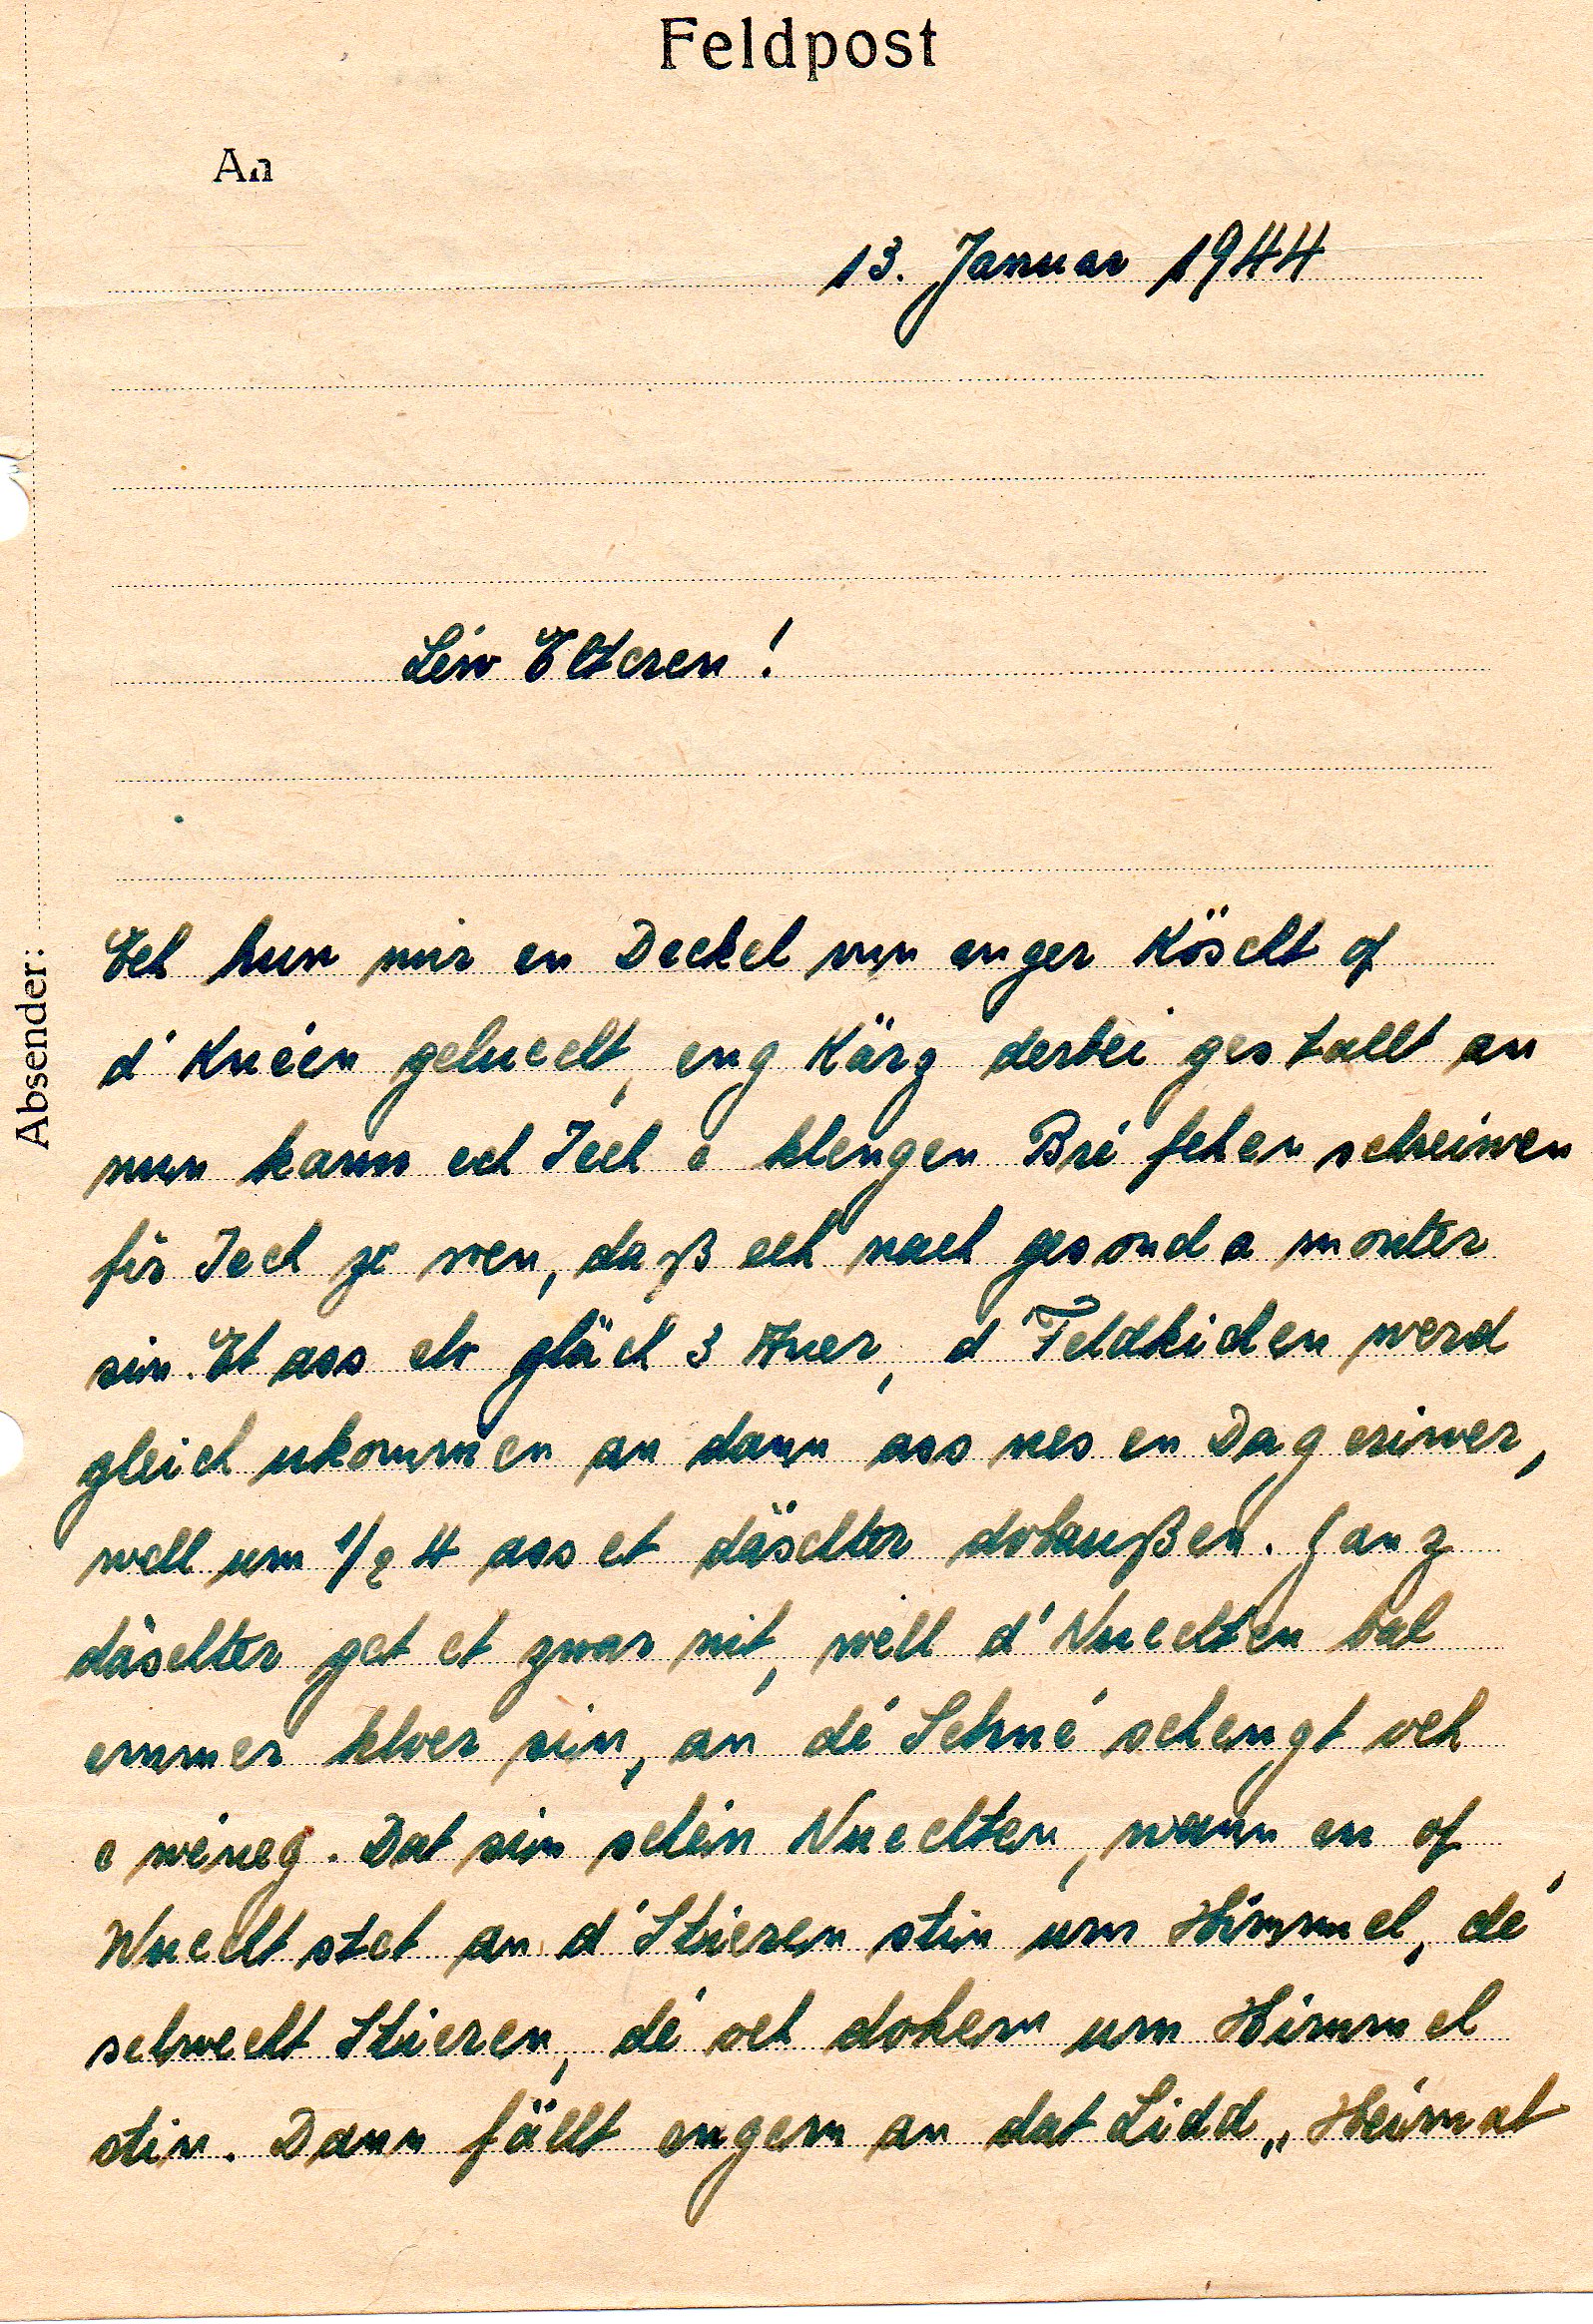 Feldpost
An
13. Januar 1944
Léiw Elteren!
Ech hun mir en Deckel vun enger Köscht of
d' Knéen geluecht, eng Kärz derbei gestallt an
nun kann ech Iech e klengen Bréifchen schreiwen
fir Iech ze wen, daß ech nach gesond a monter
sin. Et ass elo gläch 3 Auer, d' Feldkichen werd
gleich ukommen an dann ass nes en Dag eriwer,
well um 1/2 4 ass et däischter dobaußen. Ganz
däischter get et zwar nit, well d' Nuechten bal
emmer kloer sin, an dé Schné schengt och
e wéineg. Dat sin schéin Nuechten, wann en of
Wuecht stet an d' Stieren stin um Himmel, dé
selwecht Stieren, dé och dohem um Himmel
stin. Dann fällt engem an dat Lidd „Heimat
Absender: